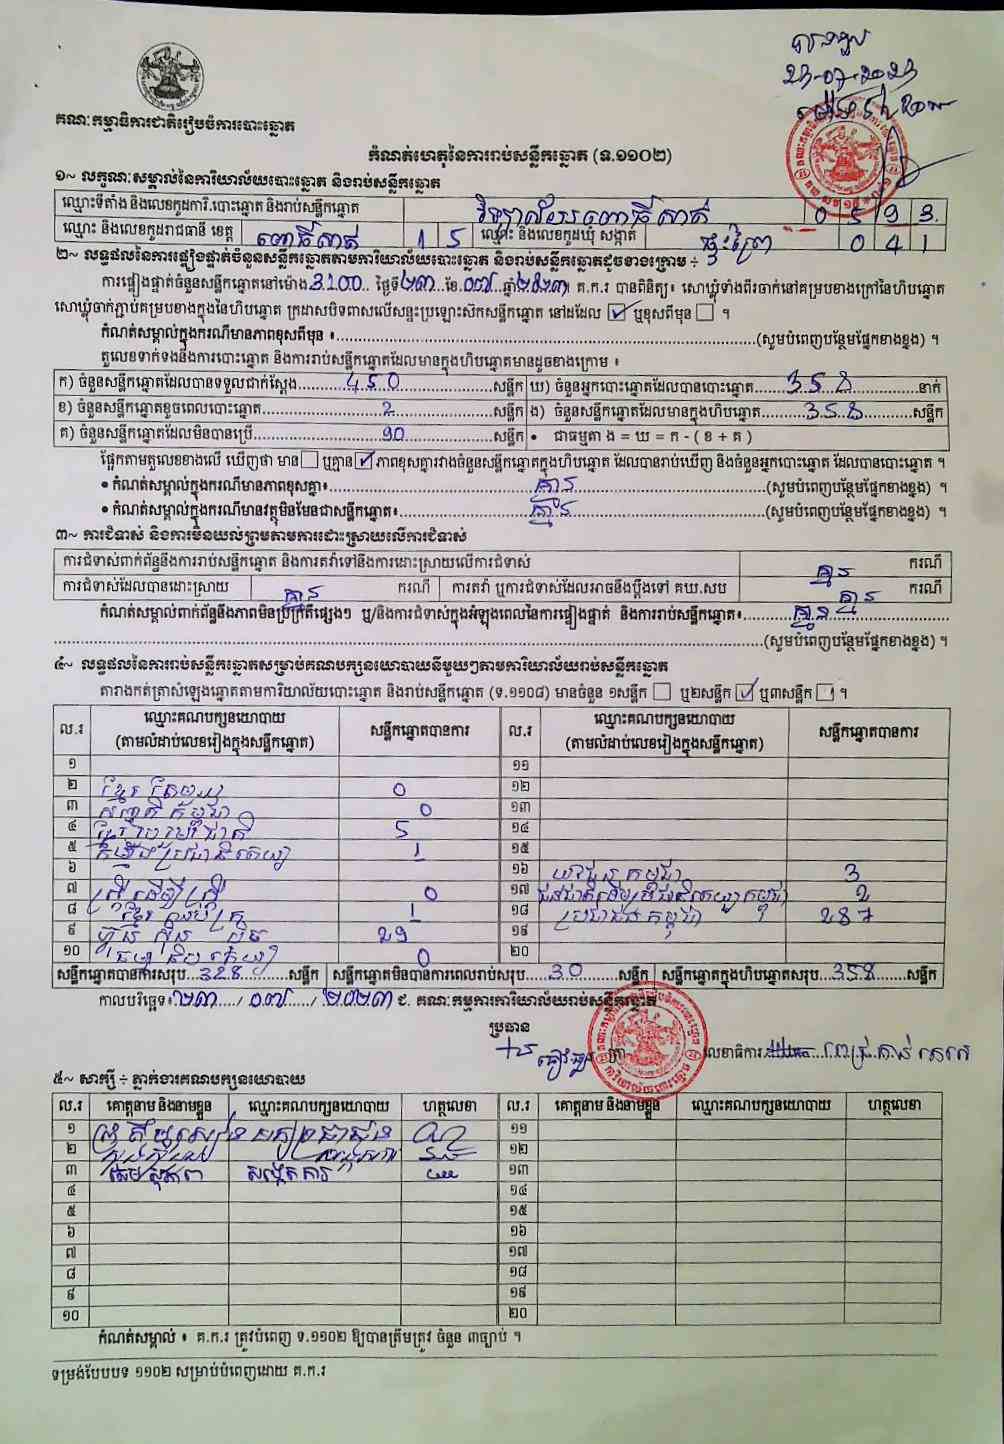 បានចូល
23-07-2023
គណៈកម្មាធិការជាតិរៀបចំការបោះឆ្នោត
កំណត់ហេតុនៃការរាប់សន្លឹកឆ្នោត (ទ.១១០២)
១~ លក្ខណៈសម្គាល់នៃការិយាល័យបោះឆ្នោត និងរាប់សន្លឹកឆ្នោត
ឈ្មោះទីតាំង និងលេខកូដការិ.បោះឆ្នោត និងរាប់សន្លឹកឆ្នោត វិទ្យាល័យ ពោធិ៍សាត់ 0 5 9 3
ឈ្មោះ និងលេខកូដរាជធានី ខេត្ត ពោធិ៍សាត់ 1 5 ឈ្មោះ និងលេខកូដឃុំ សង្កាត់ ផ្ទះព្រៃ 0 4 1
២~ លទ្ធផលនៃការផ្ទៀងផ្ទាត់ចំនួនសន្លឹកឆ្នោតតាមការិយាល័យបោះឆ្នោត និងរាប់សន្លឹកឆ្នោតដូចខាងក្រោម ÷
ការផ្ទៀងផ្ទាត់ចំនួនសន្លឹកឆ្នោតនៅម៉ោង 3:00 ថ្ងៃទី ២៣ ខែ ០៧ ឆ្នាំ ២០២៣ គ.ក.រ បានពិនិត្យ៖ សោឃ្លុំទាំងពីរចាក់នៅគម្របខាងក្រៅនៃហិបឆ្នោត
សោឃ្លុំចាក់ភ្ជាប់គម្របខាងក្នុងនៃហិបឆ្នោត ក្រដាសបិទពាសលើសន្ទះប្រឡោះស៊កសន្លឹកឆ្នោត នៅដដែល ☑ ឬខុសពីមុន ☐ ។
កំណត់សម្គាល់ក្នុងករណីមានភាពខុសពីមុន ៖ (សូមបំពេញបន្ថែមផ្នែកខាងខ្នង) ។
តួលេខទាក់ទងនឹងការបោះឆ្នោត និងការរាប់សន្លឹកឆ្នោតដែលមានក្នុងហិបឆ្នោតមានដូចខាងក្រោម ៖
ក) ចំនួនសន្លឹកឆ្នោតដែលបានទទួលជាក់ស្ដែង 450 សន្លឹក ឃ) ចំនួនអ្នកបោះឆ្នោតដែលបានបោះឆ្នោត 358 នាក់
ខ) ចំនួនសន្លឹកឆ្នោតខូចពេលបោះឆ្នោត 2 សន្លឹក ង) ចំនួនសន្លឹកឆ្នោតដែលមានក្នុងហិបឆ្នោត 358 សន្លឹក
គ) ចំនួនសន្លឹកឆ្នោតដែលមិនបានប្រើ 90 សន្លឹក • ជាធម្មតា ង = ឃ = ក - ( ខ + គ )
ផ្អែកតាមតួលេខខាងលើ ឃើញថា មាន ☐ ឬគ្មាន ☑ ភាពខុសគ្នារវាងចំនួនសន្លឹកឆ្នោតក្នុងហិបឆ្នោត ដែលបានរាប់ឃើញ និងចំនួនអ្នកបោះឆ្នោត ដែលបានបោះឆ្នោត ។
• កំណត់សម្គាល់ក្នុងករណីមានភាពខុសគ្នា៖ គ្មាន (សូមបំពេញបន្ថែមផ្នែកខាងខ្នង) ។
• កំណត់សម្គាល់ក្នុងករណីមានវត្ថុមិនមែនជាសន្លឹកឆ្នោត៖ គ្មាន (សូមបំពេញបន្ថែមផ្នែកខាងខ្នង) ។
៣~ ការជំទាស់ និងការមិនយល់ព្រមតាមការដោះស្រាយលើការជំទាស់
ការជំទាស់ពាក់ព័ន្ធនឹងការរាប់សន្លឹកឆ្នោត និងការតវ៉ាទៅនឹងការដោះស្រាយលើការជំទាស់ គ្មាន ករណី
ការជំទាស់ដែលបានដោះស្រាយ គ្មាន ករណី ការតវ៉ា ឬការជំទាស់ដែលអាចនឹងប្ដឹងទៅ គឃ.សប គ្មាន ករណី
កំណត់សម្គាល់ពាក់ព័ន្ធនឹងភាពមិនប្រក្រតីផ្សេងៗ ឬ/និងការជំទាស់ក្នុងអំឡុងពេលនៃការផ្ទៀងផ្ទាត់ និងការរាប់សន្លឹកឆ្នោត៖ គ្មាន
(សូមបំពេញបន្ថែមផ្នែកខាងខ្នង) ។
៤~ លទ្ធផលនៃការរាប់សន្លឹកឆ្នោតសម្រាប់គណបក្សនយោបាយនីមួយៗតាមការិយាល័យរាប់សន្លឹកឆ្នោត
តារាងកត់ត្រាសំឡេងឆ្នោតតាមការិយាល័យបោះឆ្នោត និងរាប់សន្លឹកឆ្នោត (ទ.១១០៨) មានចំនួន ១សន្លឹក ☐ ឬ២សន្លឹក ☑ ឬ៣សន្លឹក ☐ ។
ល.រ ឈ្មោះគណបក្សនយោបាយ (តាមលំដាប់លេខរៀងក្នុងសន្លឹកឆ្នោត) សន្លឹកឆ្នោតបានការ ល.រ ឈ្មោះគណបក្សនយោបាយ (តាមលំដាប់លេខរៀងក្នុងសន្លឹកឆ្នោត) សន្លឹកឆ្នោតបានការ
១ ១១
២ ខ្មែរ តែមួយ 0 ១២
៣ សញ្ជាតិ កម្ពុជា 0 ១៣
៤ ខ្មែររួបរួមជាតិ 5 ១៤
៥ កម្លាំងប្រជាធិបតេយ្យ 1 ១៥
៦ ១៦ យុវជន កម្ពុជា 3
៧ ស្ត្រី ដើម្បី ស្ត្រី 0 ១៧ ជនជាតិដើមប្រជាធិបតេយ្យកម្ពុជា 2
៨ ខ្មែរ ឈប់ក្រ 1 ១៨ ប្រជាជន កម្ពុជា 287
៩ ហ៊្វុនស៊ិនប៉ិច 29 ១៩
១០ ធម្មាធិបតេយ្យ 0 ២០
សន្លឹកឆ្នោតបានការសរុប 328 សន្លឹក សន្លឹកឆ្នោតមិនបានការពេលរាប់សរុប 30 សន្លឹក សន្លឹកឆ្នោតក្នុងហិបឆ្នោតសរុប 358 សន្លឹក
កាលបរិច្ឆេទ៖ ២៣ / ០៧ / ២០២៣ ជ. គណៈកម្មការការិយាល័យរាប់សន្លឹកឆ្នោត
ប្រធាន
លេខាធិការ
៥~ សាក្សី ÷ ភ្នាក់ងារគណបក្សនយោបាយ
ល.រ គោត្តនាម និងនាមខ្លួន ឈ្មោះគណបក្សនយោបាយ ហត្ថលេខា ល.រ គោត្តនាម និងនាមខ្លួន ឈ្មោះគណបក្សនយោបាយ ហត្ថលេខា
១ ១១
២ ១២
៣ សង្កេតការ ១៣
៤ ១៤
៥ ១៥
៦ ១៦
៧ ១៧
៨ ១៨
៩ ១៩
១០ ២០
កំណត់សម្គាល់ ៖ គ.ក.រ ត្រូវបំពេញ ទ.១១០២ ឱ្យបានត្រឹមត្រូវ ចំនួន ៣ច្បាប់ ។
ទម្រង់បែបបទ ១១០២ សម្រាប់បំពេញដោយ គ.ក.រ